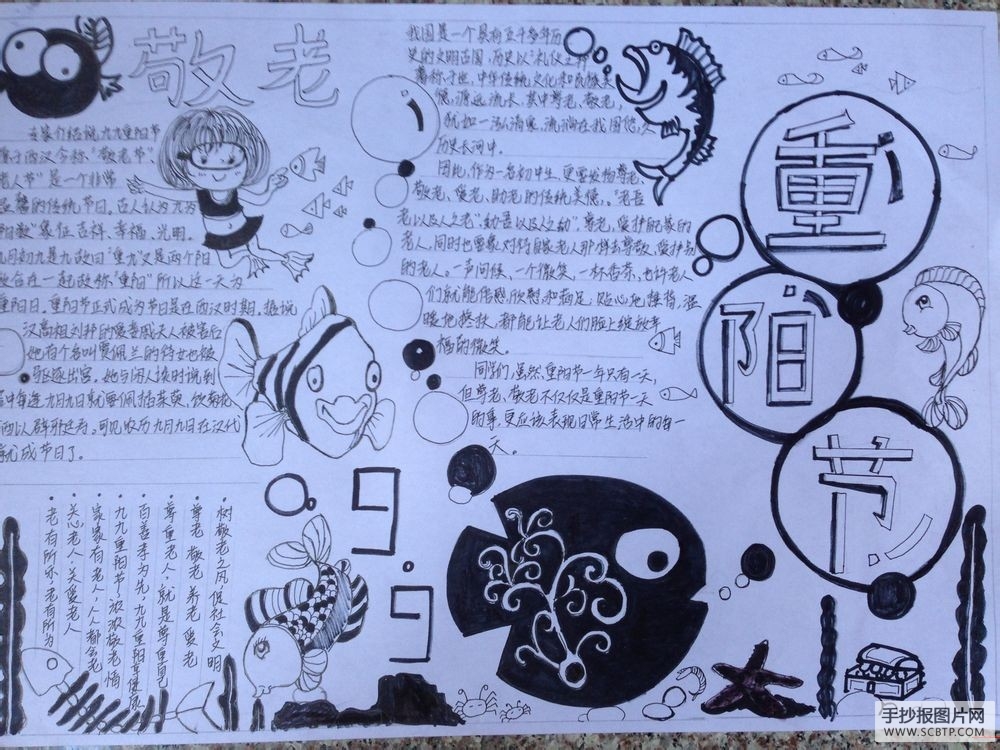 敬老
专家介绍说,九九重阳节
于西汉今称"敬老节"、
老人节"是一个非常
的传统节日。古人认为九为
阳数"象征吉祥、幸福、光明。
九月初九是九数日"重九"又是两个阳
数合在一起故称"重阳"所以这一天为
重阳日。重阳节正式成为节日是在西汉时期。据说
汉高祖刘邦的爱妾戚夫人被害后
她有个名叫贾佩兰的侍女也被
驱逐出宫。她与闲人谈时说到
宫中每逢九月九日就要佩插茱萸,饮菊花
酒以群。可见农历九月九日在汉代
就成节日了。
我国是一个具有五千多年历
史的文明古国,历史以"礼仪之邦"
著称于世,中华传统文化和民族美
德,源远流长,其中尊老、敬老,
犹如一泓清泉,流淌在我国悠久
历史长河中。
因此,作为一名初中生,更要发扬尊老、
敬老、爱老、助老的传统美德。"老吾
老以及人之老""幼吾以及人之幼",尊老,爱护自家的
老人。同时也要象对待自家老人那样去尊敬、爱护别
的老人。一声问候、一个微笑、一杯香茶,也许老人
们就能倍感欣慰和满足,贴心地搀背,温
暖地搀扶,都能让老人们脸上绽放幸
福的微笑。
同学们,虽然,重阳节一年只有一天,
但尊老、敬老不仅仅是重阳节一天
的事,更应该表现日常生活中的每一
天。
重
阳
节
9.9
·树敬老之风促社会文明
·尊老 敬老 养老 爱老
·尊重老人,就是尊重自己
·百善孝为先,九九重阳
·九九重阳节,浓浓敬老情
·家家有老人,人人都会老
·关心老人,关爱老人
·老有所乐老有所为
手抄报图片网
WWW.SCBTP.COM